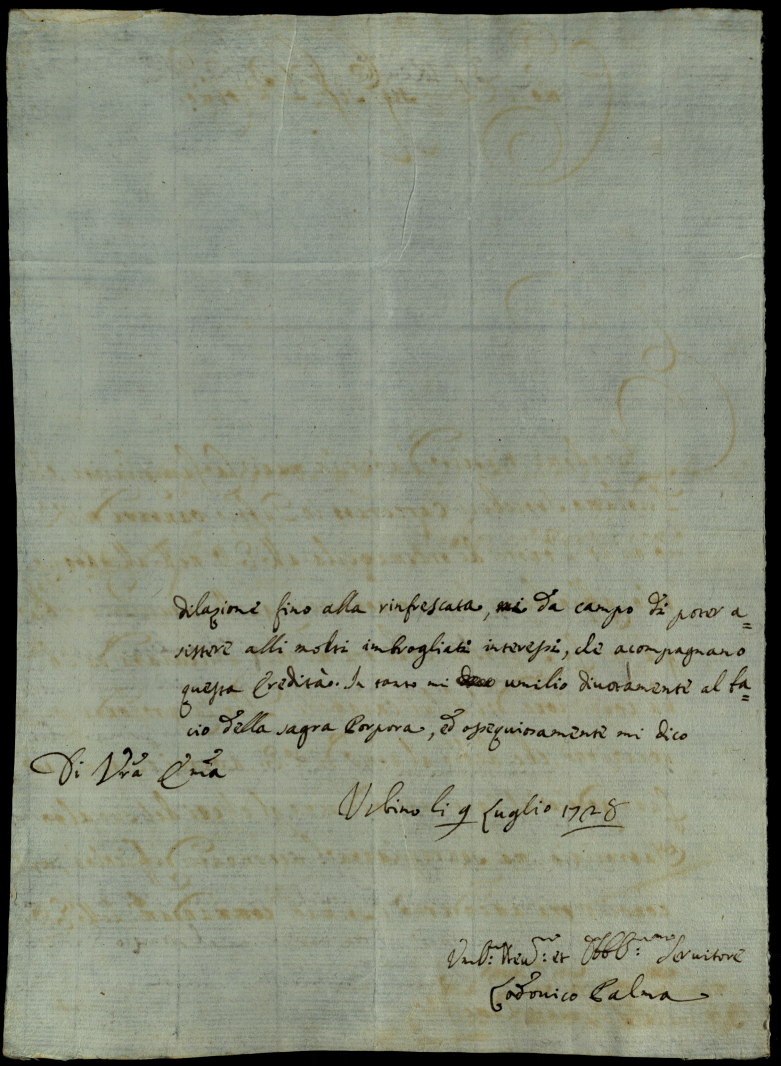 dilazione fino alla rinfrescata, mi da campo di poter a=
sistere alli molti imbrogliati interessi, che acompagnano
questa Eredità. In tanto mi umilio divotamente al ba=
cio della sagra Porpora, ed ossequiosamente mi dico
Di Vra Emza
Urbino li 9 Luglio 1728
Servitore
Lodovico Palma